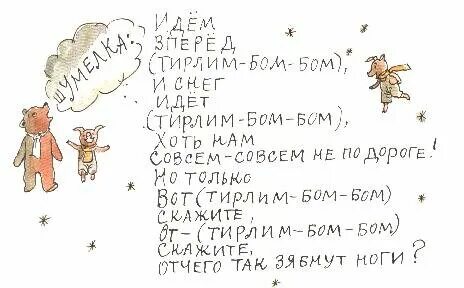 ШУМЕЛКА:
ИДЁМ
ЗПЕРЁД
(ТИРЛИМ-БОМ-БОМ),
И СНЕГ
ИДЁТ
(ТИРЛИМ-БОМ-БОМ),
ХОТЬ НАМ
СОВСЕМ-СОВСЕМ НЕ ПО ДОРОГЕ!
НО ТОЛЬКО
ВОТ (ТИРЛИМ-БОМ-БОМ)
СКАЖИТЕ,
ОТ-(ТИРЛИМ-БОМ-БОМ)
СКАЖИТЕ,
ОТЧЕГО ТАК ЗЯБНУТ НОГИ?